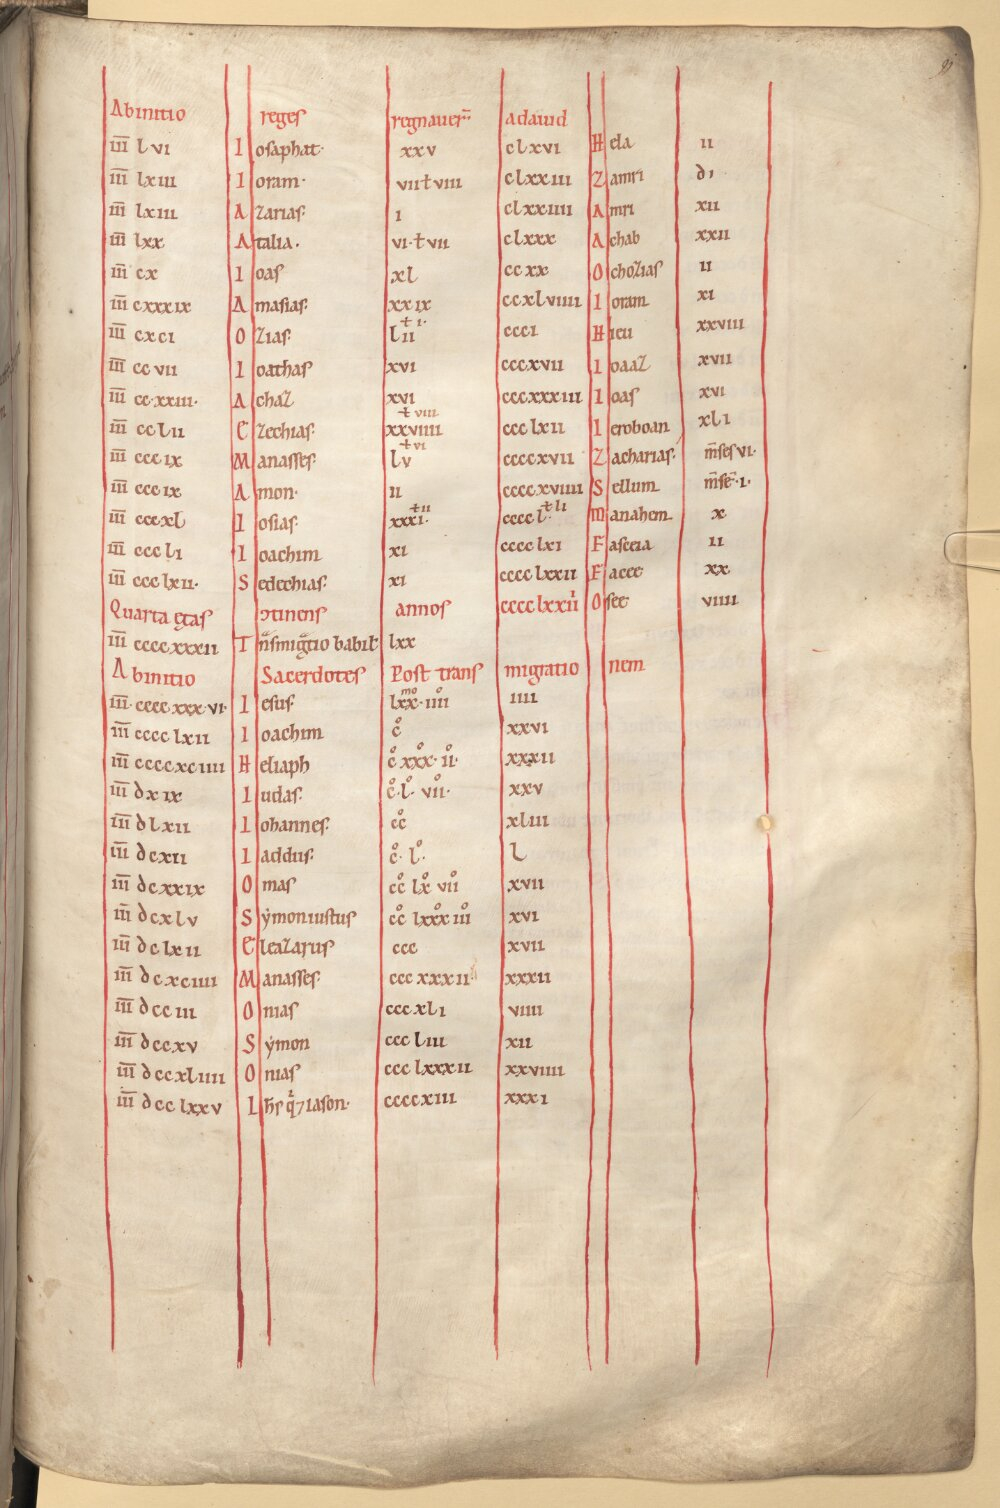 Ab initio reges regnauer̅ adauid
I̅I̅I̅ lvi Iosaphat· xxv clxvi Hela ii
I̅I̅I̅ lxiii Ioram· vii ƚ viii clxxiii Zamri d̕i
I̅I̅I̅ lxiii Azarias· i clxxiiii Amri xii
I̅I̅I̅ lxx Atalia. vi· ƚ vii clxxx Achab xxii
I̅I̅I̅ cx Ioas xl ccxx Ochozias ii
I̅I̅I̅ cxxxix Amasias· xxix ccxlviiii Ioram xi
I̅I̅I̅ cxci Ozias· lii ƚ i· ccci Hieu xxviii
I̅I̅I̅ ccvii Ioathas xvi cccxvii Ioaaz xvii
I̅I̅I̅ ccxxiii· Achaz xvi cccxxxiii Ioas xvi
I̅I̅I̅ cclii Ezechias· xxviiii ƚ viii ccclxii Ieroboan xli
I̅I̅I̅ cccix Manasses· lv ƚ vi ccccxvii Zacharias· m̅ses vi·
I̅I̅I̅ cccix Amon· ii ccccxviiii Sellum m̅se̅·i·
I̅I̅I̅ cccxl Iosias· xxxi· ƚ ii ccccl· ƚ li Manahem x
I̅I̅I̅ cccli Ioachim xi cccclxi Fasceia ii
I̅I̅I̅ ccclxii· Sedechias· xi cccclxxii Facee xx
Quarta ętas ↄtinens annos cccclxxii Osee viiii
I̅I̅I̅ ccccxxxii Tn̅smig̅tio babil̅ lxx
Ab initio Sacerdotes Post transmigrationem
I̅I̅I̅·ccccxxxvi· Iesus· lxx·iiii iiii
I̅I̅I̅ cccclxii Ioachim c° xxvi
I̅I̅I̅ ccccxciiii Heliaph c° xxx· ii· xxxii
I̅I̅I̅ dxix Iudas· c°·l°· vii°· xxv
I̅I̅I̅ dlxii Iohannes· cc° xliii
I̅I̅I̅ dcxii Iaddus· c°· l°· l
I̅I̅I̅ dcxxix Omas cc° lx° vii° xvii
I̅I̅I̅ dcxlv Sẏmon iustus cc° lxxx° iii° xvi
I̅I̅I̅ dclxii Eleazarus ccc xvii
I̅I̅I̅ dcxciiii Manasses· cccxxxii xxxii
I̅I̅I̅ dcciii Onias cccxli viiii
I̅I̅I̅ dccxv Sẏmon cccliii xii
I̅I̅I̅ dccxliiii Onias ccclxxxii xxviiii
I̅I̅I̅ dcclxxv Ihs̅ q̕ ⁊ iason· ccccxiii xxxi